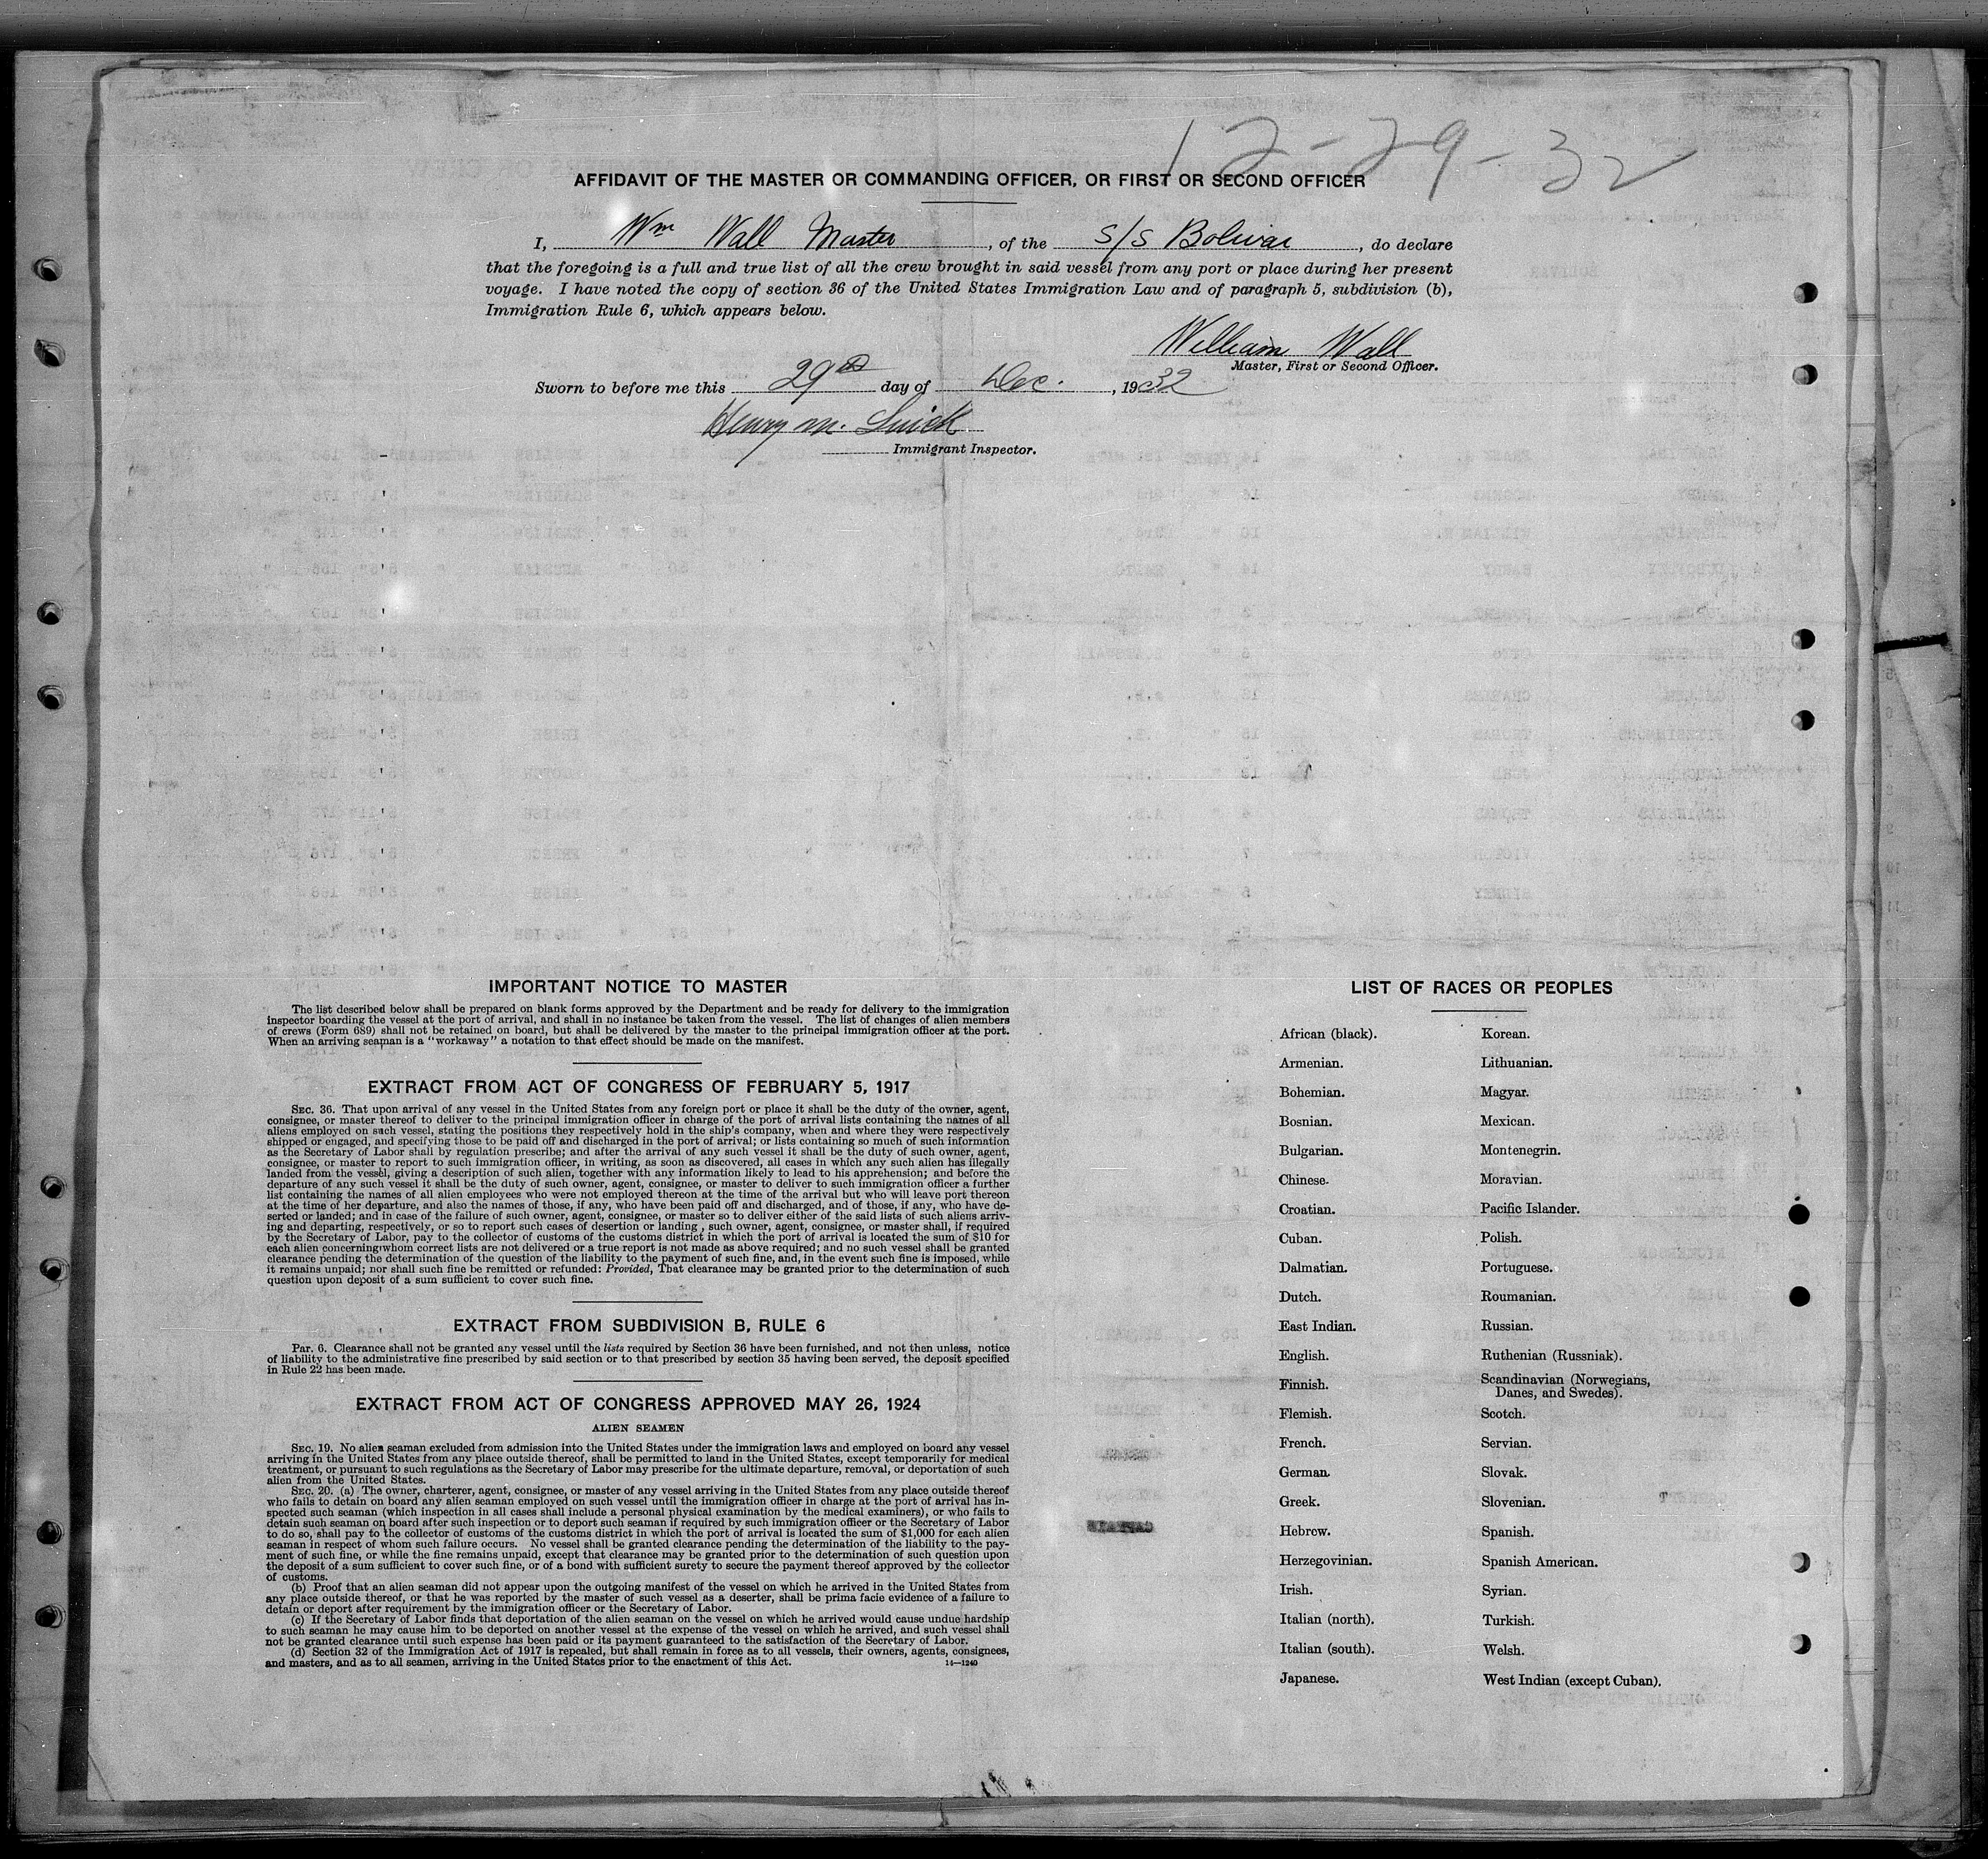 12-29-32
AFFIDAVIT OF THE MASTER OR COMMANDING OFFICER, OR FIRST OR SECOND OFFICER
I, Wm Wall Master, of the S/S Bolivar, do declare
that the foregoing is a full and true list of all the crew brought in said vessel from any port or place during her present
voyage. I have noted the copy of section 36 of the United States Immigration Law and of paragraph 5, subdivision (b),
Immigration Rule 6, which appears below.
William Wall
Master, First or Second Officer.
Sworn to before me this 29th day of Dec., 1932
Henry M.
Immigrant Inspector.
IMPORTANT NOTICE TO MASTER
The list described below shall be prepared on blank forms approved by the Department and be ready for delivery to the immigration
inspector boarding the vessel at the port of arrival, and shall in no instance be taken from the vessel. The list of changes of alien members
of crews (Form 689) shall not be retained on board, but shall be delivered by the master to the principal immigration officer at the port.
When an arriving seaman is a "workaway" a notation to that effect should be made on the manifest.
EXTRACT FROM ACT OF CONGRESS OF FEBRUARY 5, 1917
SEC. 36. That upon arrival of any vessel in the United States from any foreign port or place it shall be the duty of the owner, agent,
consignee, or master thereof to deliver to the principal immigration officer in charge of the port of arrival lists containing the names of all
aliens employed on such vessel, stating the positions they respectively hold in the ship's company, when and where they were respectively
shipped or engaged, and specifying those to be paid off and discharged in the port of arrival; or lists containing so much of such information
as the Secretary of Labor shall by regulation prescribe; and after the arrival of any such vessel it shall be the duty of such owner, agent,
consignee, or master to report to such immigration officer, in writing, as soon as discovered, all cases in which any such alien has illegally
landed from the vessel, giving a description of such alien, together with any information likely to lead to his apprehension; and before the
departure of any such vessel it shall be the duty of such owner, agent, consignee, or master to deliver to such immigration officer a further
list containing the names of all alien employees who were not employed thereon at the time of the arrival but who will leave port thereon
at the time of her departure, and also the names of those, if any, who have been paid off and discharged, and of those, if any, who have de-
serted or landed; and in case of the failure of such owner, agent, consignee, or master so to deliver either of the said lists of such aliens arriv-
ing and departing, respectively, or so to report such cases of desertion or landing, such owner, agent, consignee, or master shall, if required
by the Secretary of Labor, pay to the collector of customs of the customs district in which the port of arrival is located the sum of $10 for
each alien concerning whom correct lists are not delivered or a true report is not made as above required; and no such vessel shall be granted
clearance pending the determination of the question of the liability to the payment of such fine, and, in the event such fine is imposed, while
it remains unpaid; nor shall such fine be remitted or refunded: Provided, That clearance may be granted prior to the determination of such
question upon deposit of a sum sufficient to cover such fine.
EXTRACT FROM SUBDIVISION B, RULE 6
Par. 6. Clearance shall not be granted any vessel until the lists required by Section 36 have been furnished, and not then unless, notice
of liability to the administrative fine prescribed by said section or to that prescribed by section 35 having been served, the deposit specified
in Rule 22 has been made.
EXTRACT FROM ACT OF CONGRESS APPROVED MAY 26, 1924
ALIEN SEAMEN
SEC. 19. No alien seaman excluded from admission into the United States under the immigration laws and employed on board any vessel
arriving in the United States from any place outside thereof, shall be permitted to land in the United States, except temporarily for medical
treatment, or pursuant to such regulations as the Secretary of Labor may prescribe for the ultimate departure, removal, or deportation of such
alien from the United States.
SEC. 20. (a) The owner, charterer, agent, consignee, or master of any vessel arriving in the United States from any place outside thereof
who fails to detain on board any alien seaman employed on such vessel until the immigration officer in charge at the port of arrival has in-
spected such seaman (which inspection in all cases shall include a personal physical examination by the medical examiners), or who fails to
detain such seaman on board after such inspection or to deport such seaman if required by such immigration officer or the Secretary of Labor
to do so, shall pay to the collector of customs of the customs district in which the port of arrival is located the sum of $1,000 for each alien
seaman in respect of whom such failure occurs. No vessel shall be granted clearance pending the determination of the liability to the pay-
ment of such fine, or while the fine remains unpaid, except that clearance may be granted prior to the determination of such question upon
the deposit of a sum sufficient to cover such fine, or of a bond with sufficient surety to secure the payment thereof approved by the collector
of customs.
(b) Proof that an alien seaman did not appear upon the outgoing manifest of the vessel on which he arrived in the United States from
any place outside thereof, or that he was reported by the master of such vessel as a deserter, shall be prima facie evidence of a failure to
detain or deport after requirement by the immigration officer or the Secretary of Labor.
(c) If the Secretary of Labor finds that deportation of the alien seaman on the vessel on which he arrived would cause undue hardship
to such seaman he may cause him to be deported on another vessel at the expense of the vessel on which he arrived, and such vessel shall
not be granted clearance until such expense has been paid or its payment guaranteed to the satisfaction of the Secretary of Labor.
(d) Section 32 of the Immigration Act of 1917 is repealed, but shall remain in force as to all vessels, their owners, agents, consignees,
and masters, and as to all seamen, arriving in the United States prior to the enactment of this Act.
14—1240
LIST OF RACES OR PEOPLES
African (black).
Armenian.
Bohemian.
Bosnian.
Bulgarian.
Chinese.
Croatian.
Cuban.
Dalmatian.
Dutch.
East Indian.
English.
Finnish.
Flemish.
French.
German.
Greek.
Hebrew.
Herzegovinian.
Irish.
Italian (north).
Italian (south).
Japanese.
Korean.
Lithuanian.
Magyar.
Mexican.
Montenegrin.
Moravian.
Pacific Islander.
Polish.
Portuguese.
Roumanian.
Russian.
Ruthenian (Russniak).
Scandinavian (Norwegians,
Danes, and Swedes).
Scotch.
Servian.
Slovak.
Slovenian.
Spanish.
Spanish American.
Syrian.
Turkish.
Welsh.
West Indian (except Cuban).